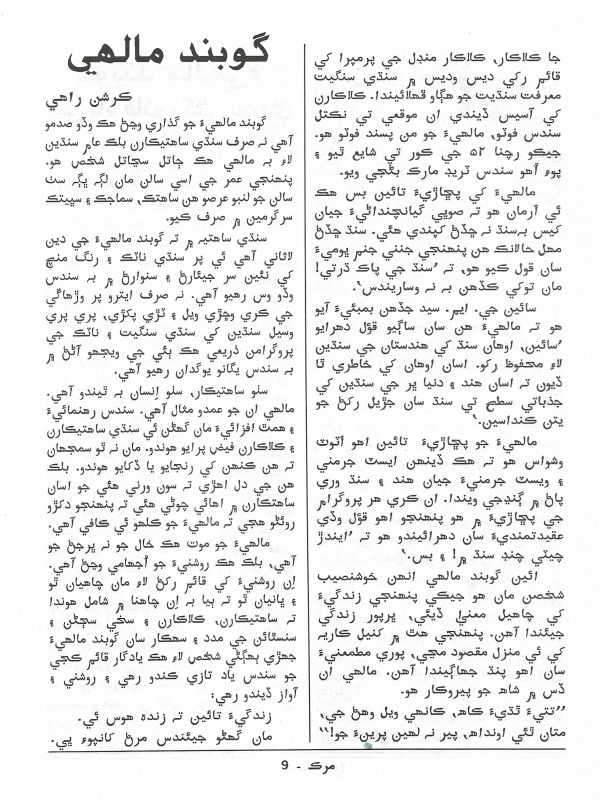 گوبند مالهي
ڪرشن راهي
گوبند مالهيءَ جو گذاري وڃڻ هڪ وڏو صدمو
آهي نہ صرف سنڌي ساهتيڪارن بلڪ عام سنڌين
لاءِ بہ مالهي هڪ ڄاتل سڃاتل شخص هو.
پنهنجي عمر جي اسي سالن مان لڳ ڀڳ سٺ
سالن جو لنبو عرصو هن ساهتڪ، سماجڪ ۽ سڀيتڪ
سرگرمين ۾ صرف ڪيو.
سنڌي ساهتيہ ۾ تہ گوبند مالهيءَ جي دين
لاثاني آهي ئي پر سنڌي ناٽڪ ۽ رنگ منچ
کي نئين سر جيئارڻ ۽ سنوارڻ ۾ بہ سندس
وڏو وس رهيو آهي. نہ صرف ايترو پر ورهاڱي
جي ڪري وڇڙي ويل ۽ ٽڙي پکڙي، پري پري
وسيل سنڌين کي سنڌي سنگيت ۽ ناٽڪ جي
پروگرامن ذريعي هڪ ٻئي جي ويجهو آڻڻ ۾
بہ سندس يگانو يوگدان رهيو آهي.
سٺو ساهتيڪار، سٺو اِنسان بہ ٿيندو آهي.
مالهي ان جو عمدو مثال آهي. سندس رهنمائيءَ
۽ همٿ افزائيءَ مان گهڻن ئي سنڌي ساهتيڪارن
۽ ڪلاڪارن فيض پرايو هوندو. مان نہ ٿو سمجهان
تہ هن ڪنهن کي رنجايو يا ڏکايو هوندو. بلڪ
هن جي دل اهڙي تہ سون ورني هئي جو اسان
ساهتڪارن ۾ اهائي چوڻي هئي تہ پنهنجو دکڙو
روئڻو هجي تہ مالهيءَ جو ڪلهو ئي ڪافي آهي.
مالهيءَ جو موت هڪ خال جو نہ ڀرجڻ جو
آهي، بلڪ هڪ روشنيءَ جو اُجهامي وڃڻ آهي.
اِن روشنيءَ کي قائم رکڻ لاءِ مان چاهيان ٿو
۽ ڀانيان ٿو تہ ٻيا بہ اِن چاهنا ۾ شامل هوندا
تہ ساهتيڪارن، ڪلاڪارن ۽ سڀني سڄڻن ۽
سنسٿائن جي مدد ۽ سهڪار سان گوبند مالهيءَ
جهڙي بهڳڻي شخص لاءِ هڪ يادگار قائم ڪجي
جو سندس ياد تازي ڪندو رهي ۽ روشني ۽
آواز ڏيندو رهي:
زندگيءَ تائين تہ زنده هوس ئي.
مان گهڻو جيئندس مرڻ کانپوءِ ڀي.
جا ڪلاڪار، ڪلاڪار منڊل جي پرمپرا کي
قائم رکي ديس وديس ۾ سنڌي سنگيت
معرفت سنڌيت جو هڳاءُ ڦهلائيندا. ڪلاڪارن
کي آسيس ڏيندي ان موقعي تي نڪتل
سندس فوٽو، مالهيءَ جو من پسند فوٽو هو.
جيڪو رچنا ۵۲ جي ڪور تي شايع ٿيو ۽
پوءِ اُهو سندس ٽريڊ مارڪ بڻجي ويو.
مالهيءَ کي پڇاڙيءَ تائين بس هڪ
ئي آرمان هو تہ صوڀي گيانچنداڻيءَ جيان
کيس بہ سنڌ نہ ڇڏڻ کپندي هئي. سنڌ ڇڏڻ
مهل حالانڪ هن پنهنجي جنني جنم ڀوميءَ
سان قول ڪيو هو، تہ ’سنڌ جي پاڪ ڌرتي!
مان توکي ڪڏهن بہ نہ وساريندس‘.
سائين جي. ايم. سيد جڏهن بمبئيءَ آيو
هو تہ مالهيءَ هن سان ساڳيو قؤل دهرايو
’سائين، اوهان سنڌ کي هندستان جي سنڌين
لاءِ محفوظ رکو. اسان اوهان کي خاطري ٿا
ڏيون تہ اسان هند ۽ دنيا ڀر جي سنڌين کي
جذباتي سطح تي سنڌ سان جڙيل رکڻ جو
يتن ڪنداسين.‘
مالهيءَ جو پڇاڙيءَ تائين اهو اَٽوٽ
وشواس هو تہ هڪ ڏينهن ايسٽ جرمني
۽ ويسٽ جرمنيءَ جيان هند ۽ سنڌ وري
پاڻ ۾ ڳنڍجي ويندا. ان ڪري هر پروگرام
جي پڇاڙيءَ ۾ هو پنهنجو اهو قؤل وڏي
عقيدتمنديءَ سان دهرائيندو هو تہ ’ايندڙ
چيٽي چنڊ سنڌ ۾! ۽ بس.‘
ائين گوبند مالهي انهن خوشنصيب
شخصن مان هو جيڪي پنهنجي زندگيءَ
کي چاهيل معنيٰ ڏيئي، ڀرپور زندگي
جيئندا آهن. پنهنجي هٿ ۾ کنيل ڪاريہ
کي ئي منزل مقصود مڃي، پوري مطمعنيءَ
سان اهو پنڌ جهاڳيندا آهن. مالهي ان
ڏس ۾ شاهہ جو پيروڪار هو.
”تتيءَ ٿڌيءَ ڪاهہ، ڪانهي ويل وهڻ جي،
متان ٿئي اونداهہ، پير نہ لهين پرينءَ جو!“
مرڪ - 9